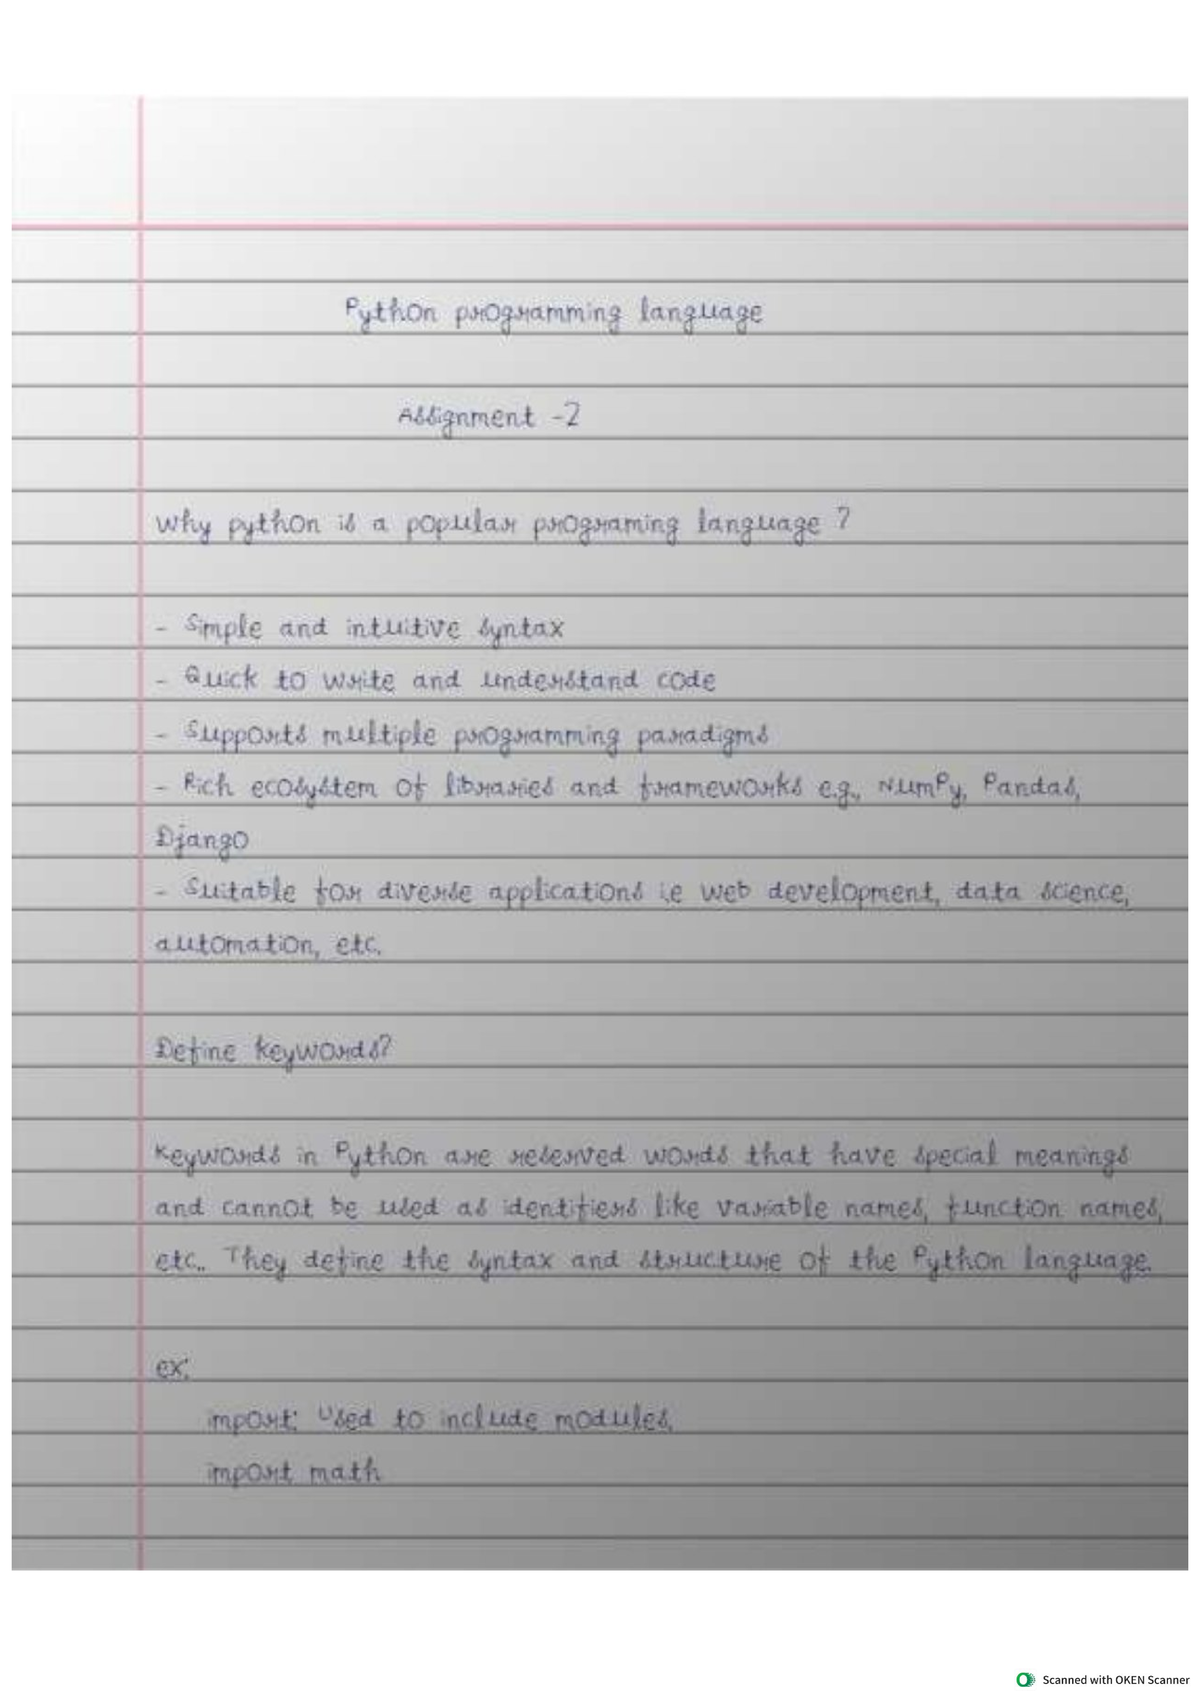 Python programming language
Assignment -2
Why python is a popular programing language ?
- Simple and intuitive syntax
- Quick to write and understand code
- Supports multiple programming paradigms
- Rich ecosystem of libraries and frameworks e.g., NumPy, Pandas,
Django
- Suitable for diverse applications i.e web development, data science,
automation, etc.
Define keywords?
Keywords in Python are reserved words that have special meanings
and cannot be used as identifiers like variable names, function names,
etc.. They define the syntax and structure of the Python language.
ex:
import: Used to include modules.
import math
Scanned with OKEN Scanner